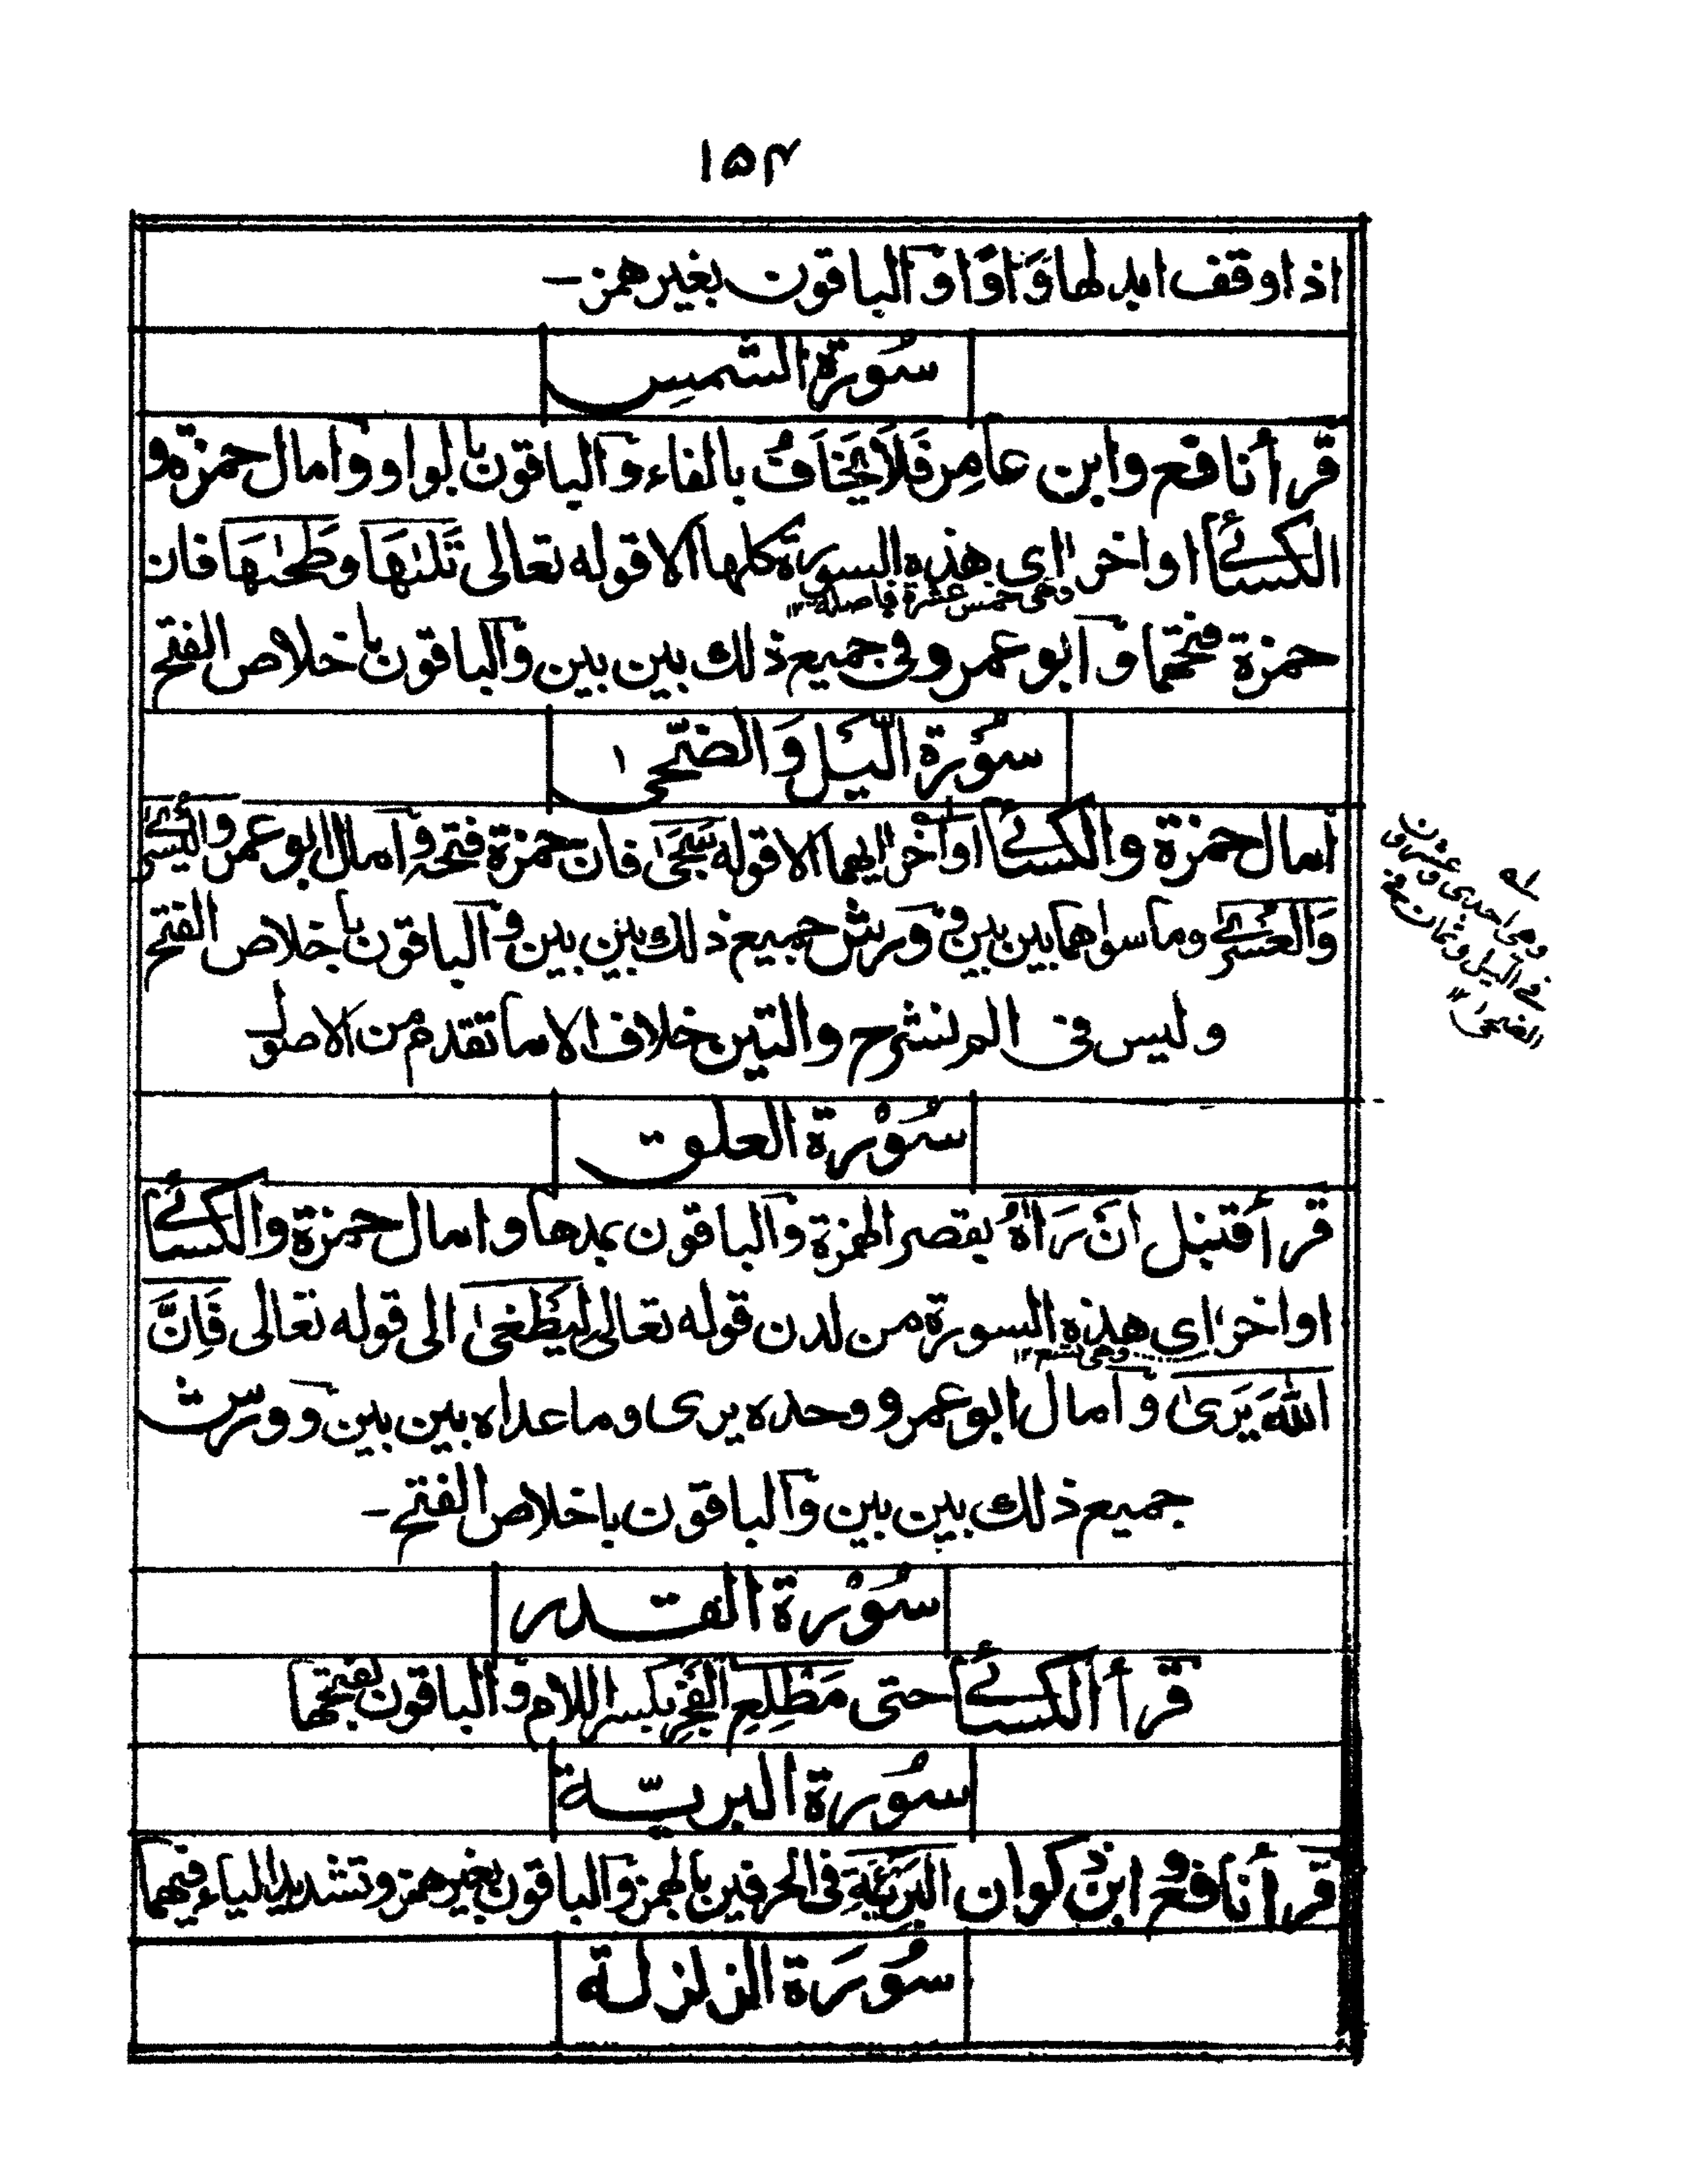 ١٥٤
اذا وقف ابدلها وَاوًا والباقون بغير همز -
سُورة الشمسِ
قرأ نافع وابن عامِر فَلَا يَخَافُ بالفاء والباقون بالواو وامال حمزه و
الكسائے اواخر اٰى هذه السورة كلها الا قوله تعالى تَلٰىهَا وطَحٰىهَا فان
وهى خمس عشرة فاصلة ١٢
حمزة فتحهما وابو عمرو فى جميع ذلك بين بين والباقون باخلاص الفتح
سُوْرة الّيل وَالضّحى
أمال حمزة والكسائے اواخر اٰيهما الا قوله سَجٰى فان حمزة فتحه وامال ابو عمرو لليسرے
وَالعُسْرے وما سواهما بين بين و ورش جميع ذلك بين بين و الباقون باخلاص الفتح
وليس فى الم نشرح والتين خلاف الا ما تقدم من الاصول
سُوْرة العلق
قرأ قنبل اَنْ رَاَهُ بقصر الهمزة والباقون بمدها وامال حمزة والكسائے
اواخر اٰى هذه السورة من لدن قوله تعالى لَيَطْغىٰ الى قوله تعالى فَاِنَّ
وهى تسع ١٢
اللّٰهَ يَرَىٰ وامال ابو عمرو وحده يرى وما عداه بين بين و ورش
جميع ذلك بين بين والباقون باخلاص الفتح -
سُوْرة القدر
قرأ الكسائے حتى مَطْلِعِ الْفَجْرِ بكسر اللام والباقون بفتحها
سُورة البريّة
قرأ نافع و ابن ذكوان البَرِيْئَةِ فى الحرفين بالهمز والباقون بغير همز وتشديد الياء فيهما
سُورَة الزلزلة
له
وهى احدى وعشرون
فى الّيل وثمان
الضحى ١٢